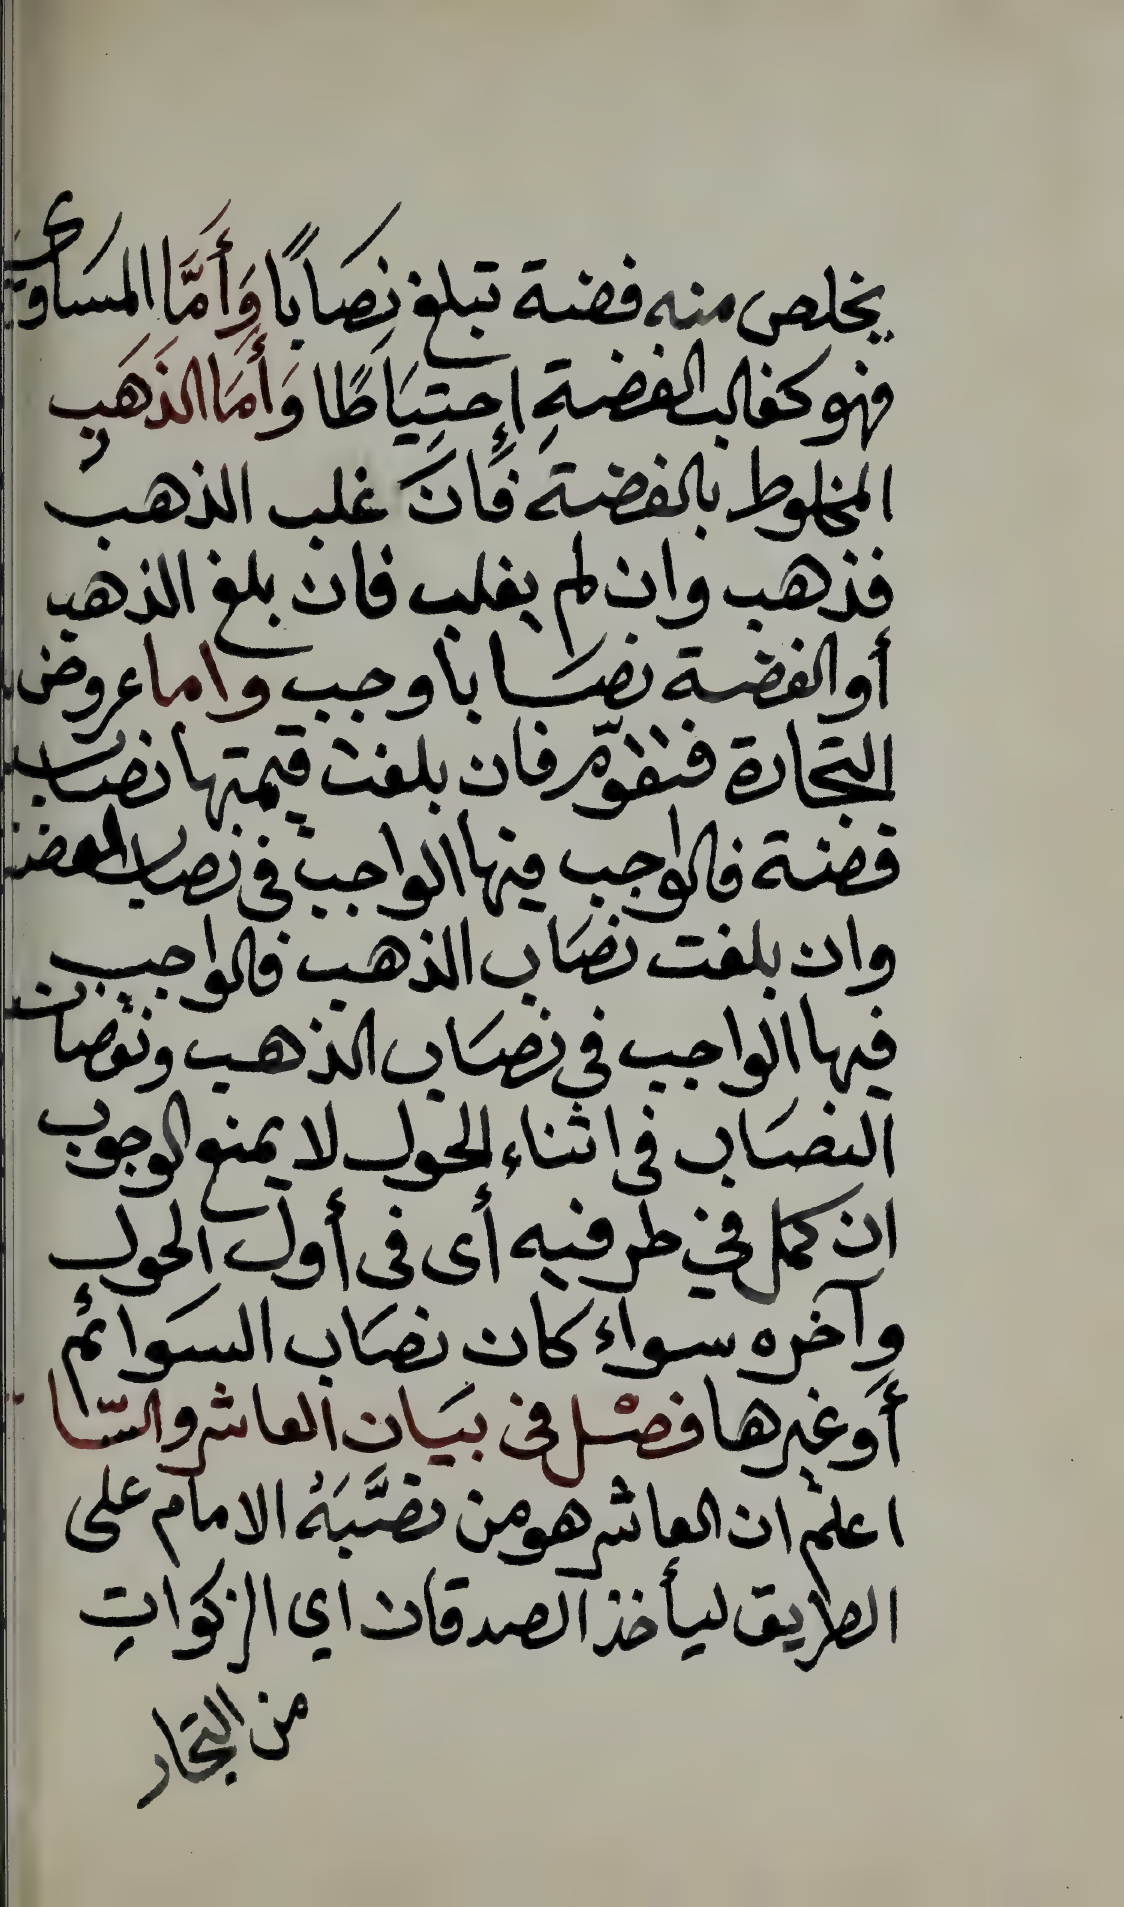 يخلص منه فضة تبلغ نِصَابًا وَأَمَّا المساوى
فهو كغالب الفضةِ إحتِيَاطًا وَأَمَا الذَهَب
المخلوط بالفضة فَانَ غلب الذهب
فذهب وان لم يغلب فان بلغ الذهب
أو الفضة نصَابا وجب واما عروض
التجارة فتقوّم فان بلغت قيمتها نصاب
فضة فالواجب فيها الواجب فى نصاب الفضة
وان بلغت نصَاب الذهب فالواجب
فيها الواجب فى نصَاب الذهب ونقصان
النصَاب فى اثناء الحول لا يمنع الوجوب
ان كمل في طرفيه أى فى أول الحول
وآخره سواء كان نصَاب السَوائم
أو غيرها فصْل فى بيَان العاشر والسّا
اعلم ان العاشر هو من نصَّبَهُ الامام على
الطريق ليأخذ الصدقات اي الزكَواتِ
من التجار